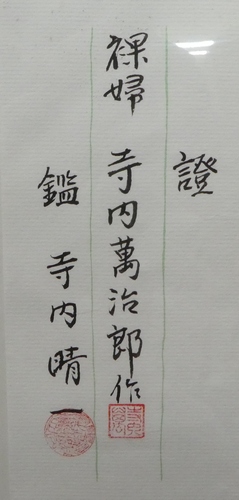 證
裸婦 寺内萬治郎作
鑑 寺内晴一